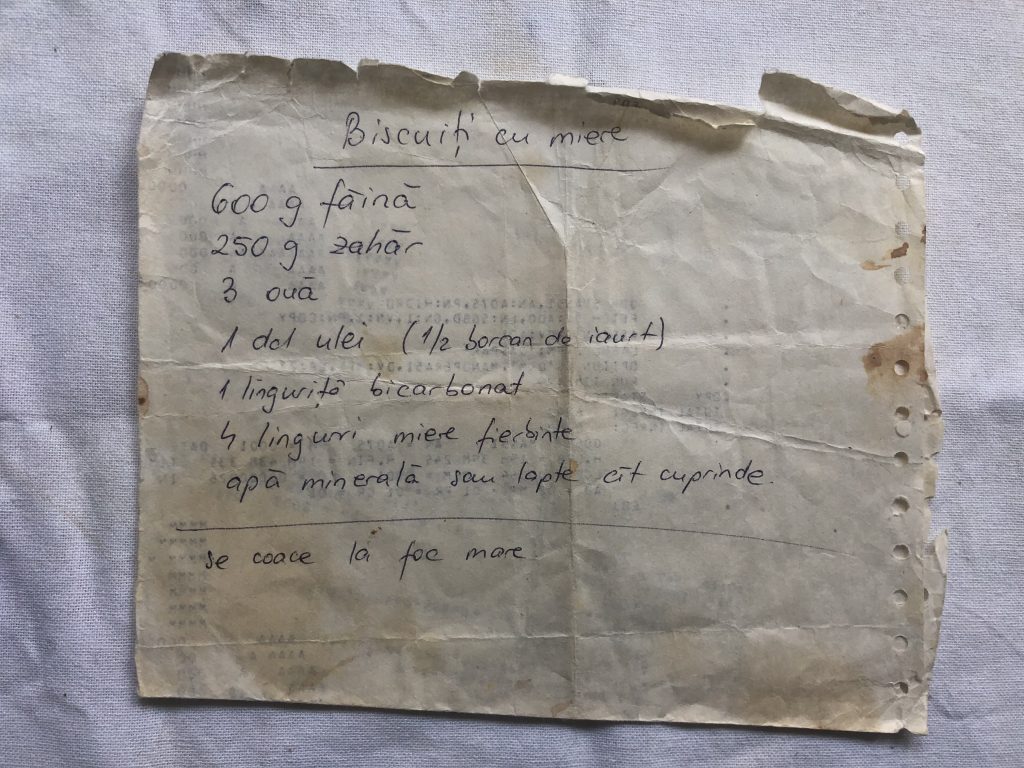 Biscuiți cu miere
600 g făină
250 g zahăr
3 ouă
1 dcl ulei (1/2 borcan de iaurt)
1 linguriță bicarbonat
4 linguri miere fierbinte
apă minerală sau lapte cît cuprinde.
se coace la foc mare